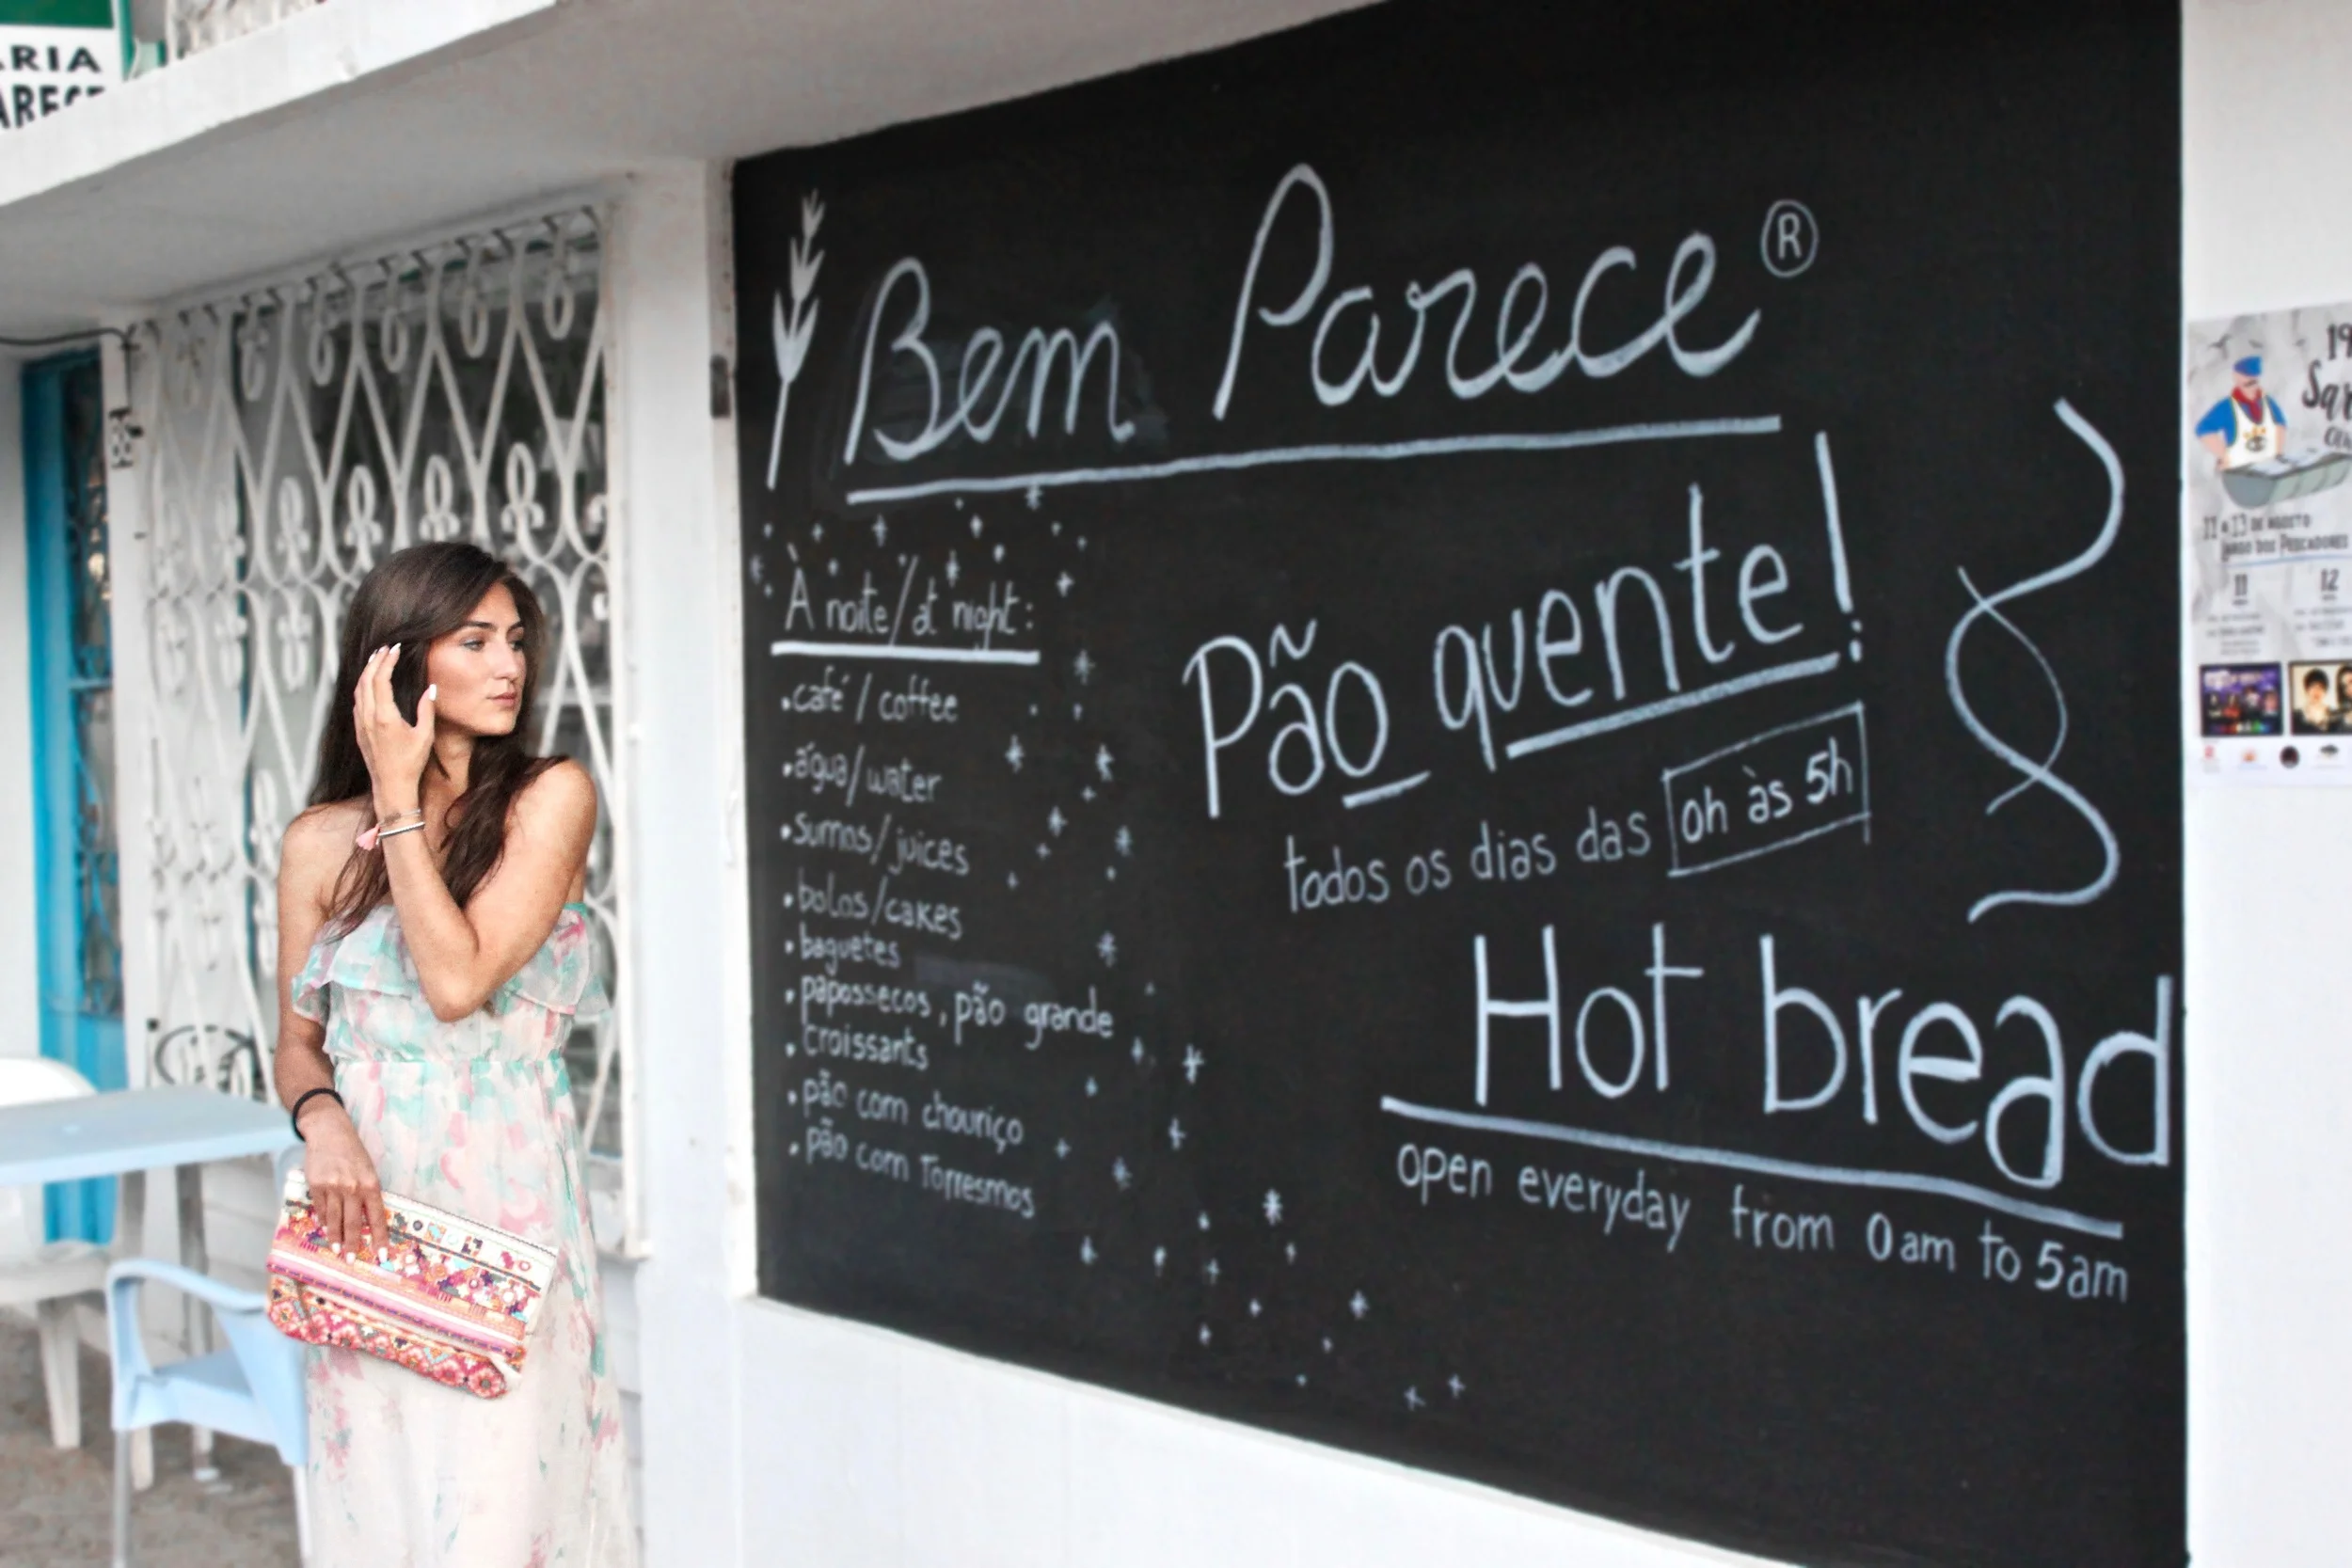 RIA
Bem Parece ®
À noite/at night:
.café / coffee
.água/water
.sumos/juices
.bolos/cakes
.baguetes
.papossecos, pão grande
.croissants
.pão com chouriço
.pão com Torresmos
Pão quente!
todos os dias das 0h às 5h
Hot bread
open everyday from 0am to 5am
19
Sar
11 a 13 de Agosto
Largo dos Pescadores
11
12